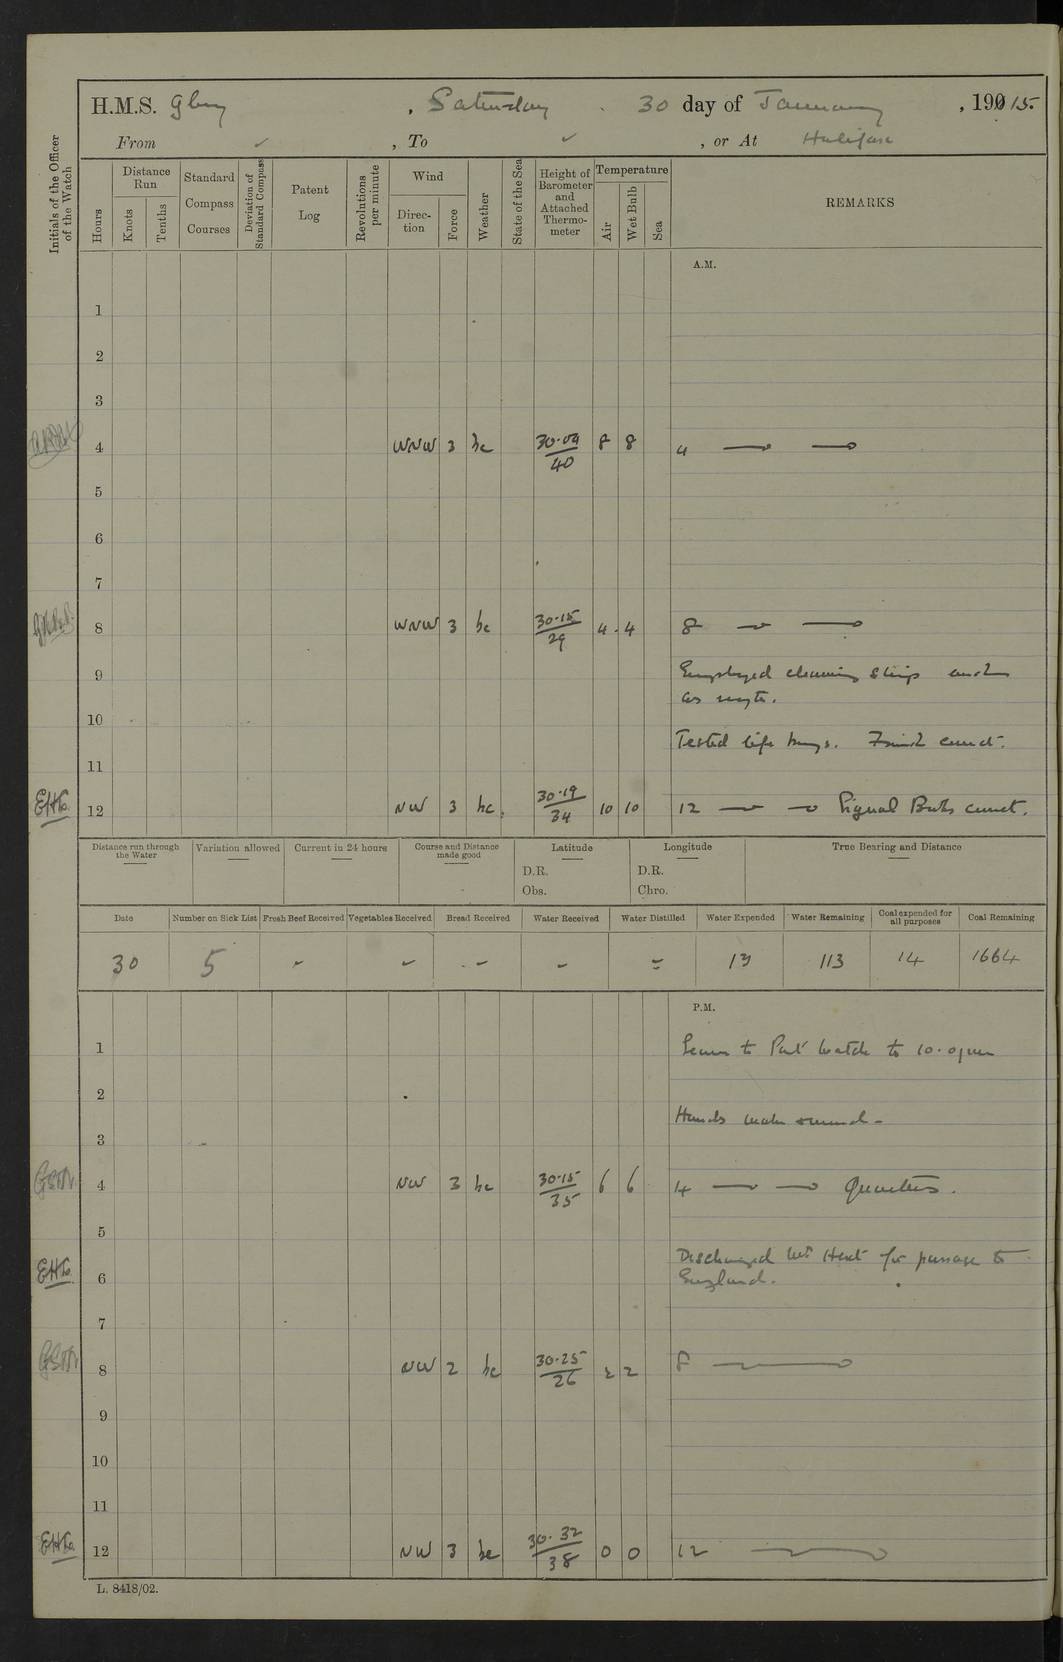 H.M.S. Glory, Saturday. 30 day of January, 19015.
From ✓, To ✓, or At Halifax
Initials of the Officer of the Watch
Hours
Distance Run
Knots
Tenths
Standard Compass Courses
Deviation of Standard Compass
Patent Log
Revolutions per minute
Wind
Direction
Force
Weather
State of the Sea
Height of Barometer and Attached Thermometer
Temperature
Air
Wet Bulb
Sea
REMARKS
A.M.
1
2
3
4 WNW 3 bc 30.09/40 8 8 4
5
6
7
8 WNW 3 bc 30.15/29 4 4 8
9 Employed cleaning ship and
as reqte.
10
Tested life buoys.
11
EHL 12 NW 3 bc. 30.19/34 10 10 12 Signal Buts exact.
Distance run through the Water
Variation allowed
Current in 24 hours
Course and Distance made good
Latitude
D.R.
Obs.
Longitude
D.R.
Chro.
True Bearing and Distance
Date
Number on Sick List
Fresh Beef Received
Vegetables Received
Bread Received
Water Received
Water Distilled
Water Expended
Water Remaining
Coal expended for all purposes
Coal Remaining
30 5 - - - - = 13 113 14 1664
P.M.
1 Leave to Part Watch to 10.0pm
2
Hands make & mend -
3
4 NW 3 bc 30.15/35 6 6 4 Quarters.
5
Discharged for passage to
EHL 6 England.
7
8 NW 2 bc 30.25/26 2 2 8
9
10
11
EHL 12 NW 3 bc 30.32/38 0 0 12
L. 8418/02.